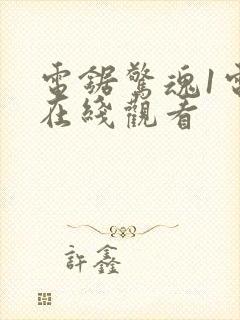 電鋸驚魂1電
在綫觀看
許鑫